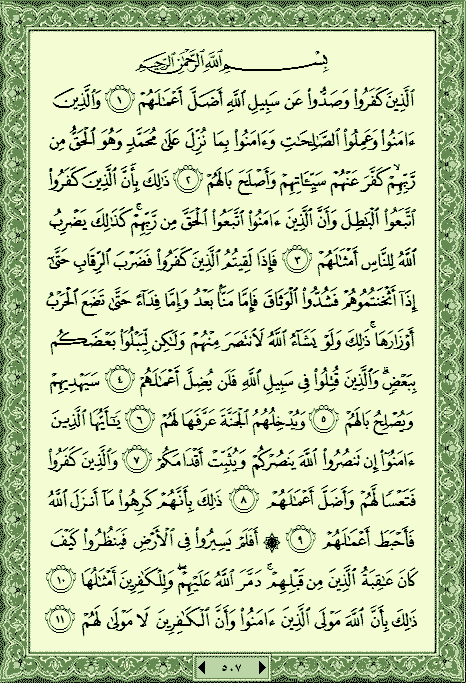 بِسْمِ ٱللَّهِ ٱلرَّحْمَٰنِ ٱلرَّحِيمِ
ٱلَّذِينَ كَفَرُوا۟ وَصَدُّوا۟ عَن سَبِيلِ ٱللَّهِ أَضَلَّ أَعْمَٰلَهُمْ ١ وَٱلَّذِينَ
ءَامَنُوا۟ وَعَمِلُوا۟ ٱلصَّٰلِحَٰتِ وَءَامَنُوا۟ بِمَا نُزِّلَ عَلَىٰ مُحَمَّدٍ وَهُوَ ٱلْحَقُّ مِن
رَّبِّهِمْ ۙ كَفَّرَ عَنْهُمْ سَيِّـَٔاتِهِمْ وَأَصْلَحَ بَالَهُمْ ٢ ذَٰلِكَ بِأَنَّ ٱلَّذِينَ كَفَرُوا۟
ٱتَّبَعُوا۟ ٱلْبَٰطِلَ وَأَنَّ ٱلَّذِينَ ءَامَنُوا۟ ٱتَّبَعُوا۟ ٱلْحَقَّ مِن رَّبِّهِمْ ۚ كَذَٰلِكَ يَضْرِبُ
ٱللَّهُ لِلنَّاسِ أَمْثَٰلَهُمْ ٣ فَإِذَا لَقِيتُمُ ٱلَّذِينَ كَفَرُوا۟ فَضَرْبَ ٱلرِّقَابِ حَتَّىٰٓ
إِذَآ أَثْخَنتُمُوهُمْ فَشُدُّوا۟ ٱلْوَثَاقَ فَإِمَّا مَنًّۢا بَعْدُ وَإِمَّا فِدَآءً حَتَّىٰ تَضَعَ ٱلْحَرْبُ
أَوْزَارَهَا ۚ ذَٰلِكَ وَلَوْ يَشَآءُ ٱللَّهُ لَٱنتَصَرَ مِنْهُمْ وَلَٰكِن لِّيَبْلُوَا۟ بَعْضَكُم
بِبَعْضٍ ۗ وَٱلَّذِينَ قُتِلُوا۟ فِى سَبِيلِ ٱللَّهِ فَلَن يُضِلَّ أَعْمَٰلَهُمْ ٤ سَيَهْدِيهِمْ
وَيُصْلِحُ بَالَهُمْ ٥ وَيُدْخِلُهُمُ ٱلْجَنَّةَ عَرَّفَهَا لَهُمْ ٦ يَٰٓأَيُّهَا ٱلَّذِينَ
ءَامَنُوٓا۟ إِن تَنصُرُوا۟ ٱللَّهَ يَنصُرْكُمْ وَيُثَبِّتْ أَقْدَامَكُمْ ٧ وَٱلَّذِينَ كَفَرُوا۟
فَتَعْسًا لَّهُمْ وَأَضَلَّ أَعْمَٰلَهُمْ ٨ ذَٰلِكَ بِأَنَّهُمْ كَرِهُوا۟ مَآ أَنزَلَ ٱللَّهُ
فَأَحْبَطَ أَعْمَٰلَهُمْ ٩ ۞ أَفَلَمْ يَسِيرُوا۟ فِى ٱلْأَرْضِ فَيَنظُرُوا۟ كَيْفَ
كَانَ عَٰقِبَةُ ٱلَّذِينَ مِن قَبْلِهِمْ ۚ دَمَّرَ ٱللَّهُ عَلَيْهِمْ ۖ وَلِلْكَٰفِرِينَ أَمْثَٰلُهَا ١٠
ذَٰلِكَ بِأَنَّ ٱللَّهَ مَوْلَى ٱلَّذِينَ ءَامَنُوا۟ وَأَنَّ ٱلْكَٰفِرِينَ لَا مَوْلَىٰ لَهُمْ ١١
٥٠٧